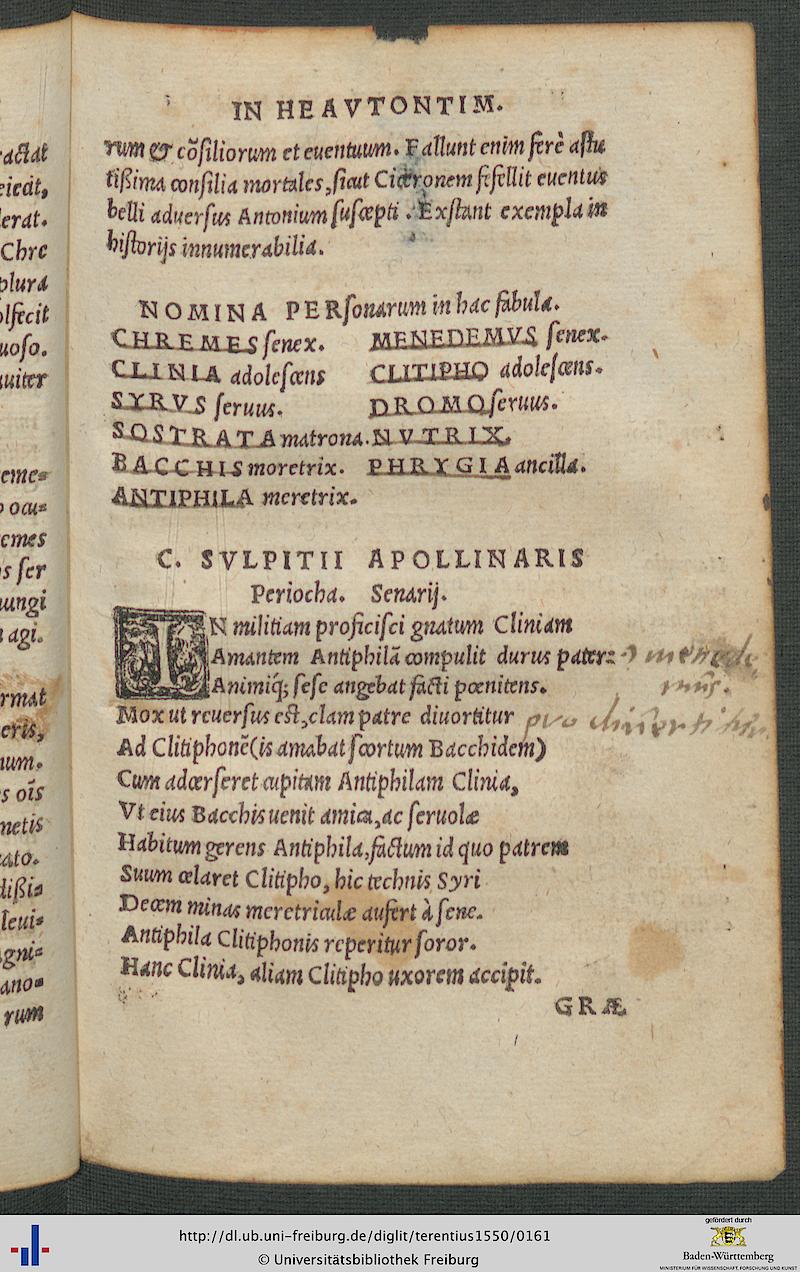 IN HEAVTONTIM.
rum & cõsiliorum et euentuum. Fallunt enim ferè astu
tißima consilia mortales, sicut Ciceronem fefellit euentus
belli aduersus Antonium suscepti. Exstant exempla in
historijs innumerabilia.
NOMINA PERsonarum in hac fabula.
CHREMES senex. MENEDEMVS senex.
CLINIA adolescens CLITIPHO adolescens.
SYRVS seruus. DROMO seruus.
SOSTRATA matrona. NVTRIX.
BACCHIS moretrix. PHRYGIA ancilla.
ANTIPHILA meretrix.
C. SVLPITII APOLLINARIS
Periocha. Senarij.
IN militiam proficisci gnatum Cliniam
Amantem Antiphilã compulit durus pater: menede
Animiq́; sese angebat facti pœnitens. mus.
Mox ut reuersus est, clam patre diuortitur pro diuertitur
Ad Clitiphonẽ (is amabat scortum Bacchidem)
Cum adcerseret cupitam Antiphilam Clinia,
Vt eius Bacchis uenit amica, ac seruolæ
Habitum gerens Antiphila, factum id quo patrem
Suum celaret Clitipho, hic technis Syri
Decem minas meretriculæ aufert à sene.
Antiphila Clitiphonis reperitur soror.
Hanc Clinia, aliam Clitipho uxorem accipit.
GRÆ
ractat
eiecit,
erat.
Chre
plura
olfecit
uoso.
uiter
eme=
o ocu=
emes
s ser
iungi
agi.
rmat
eris,
num.
s oĩs
metis
ato.
dißi=
leui=
gni=
ano=
rum
http://dl.ub.uni-freiburg.de/diglit/terentius1550/0161
© Universitätsbibliothek Freiburg
gefördert durch
Baden-Württemberg
MINISTERIUM FÜR WISSENSCHAFT, FORSCHUNG UND KUNST